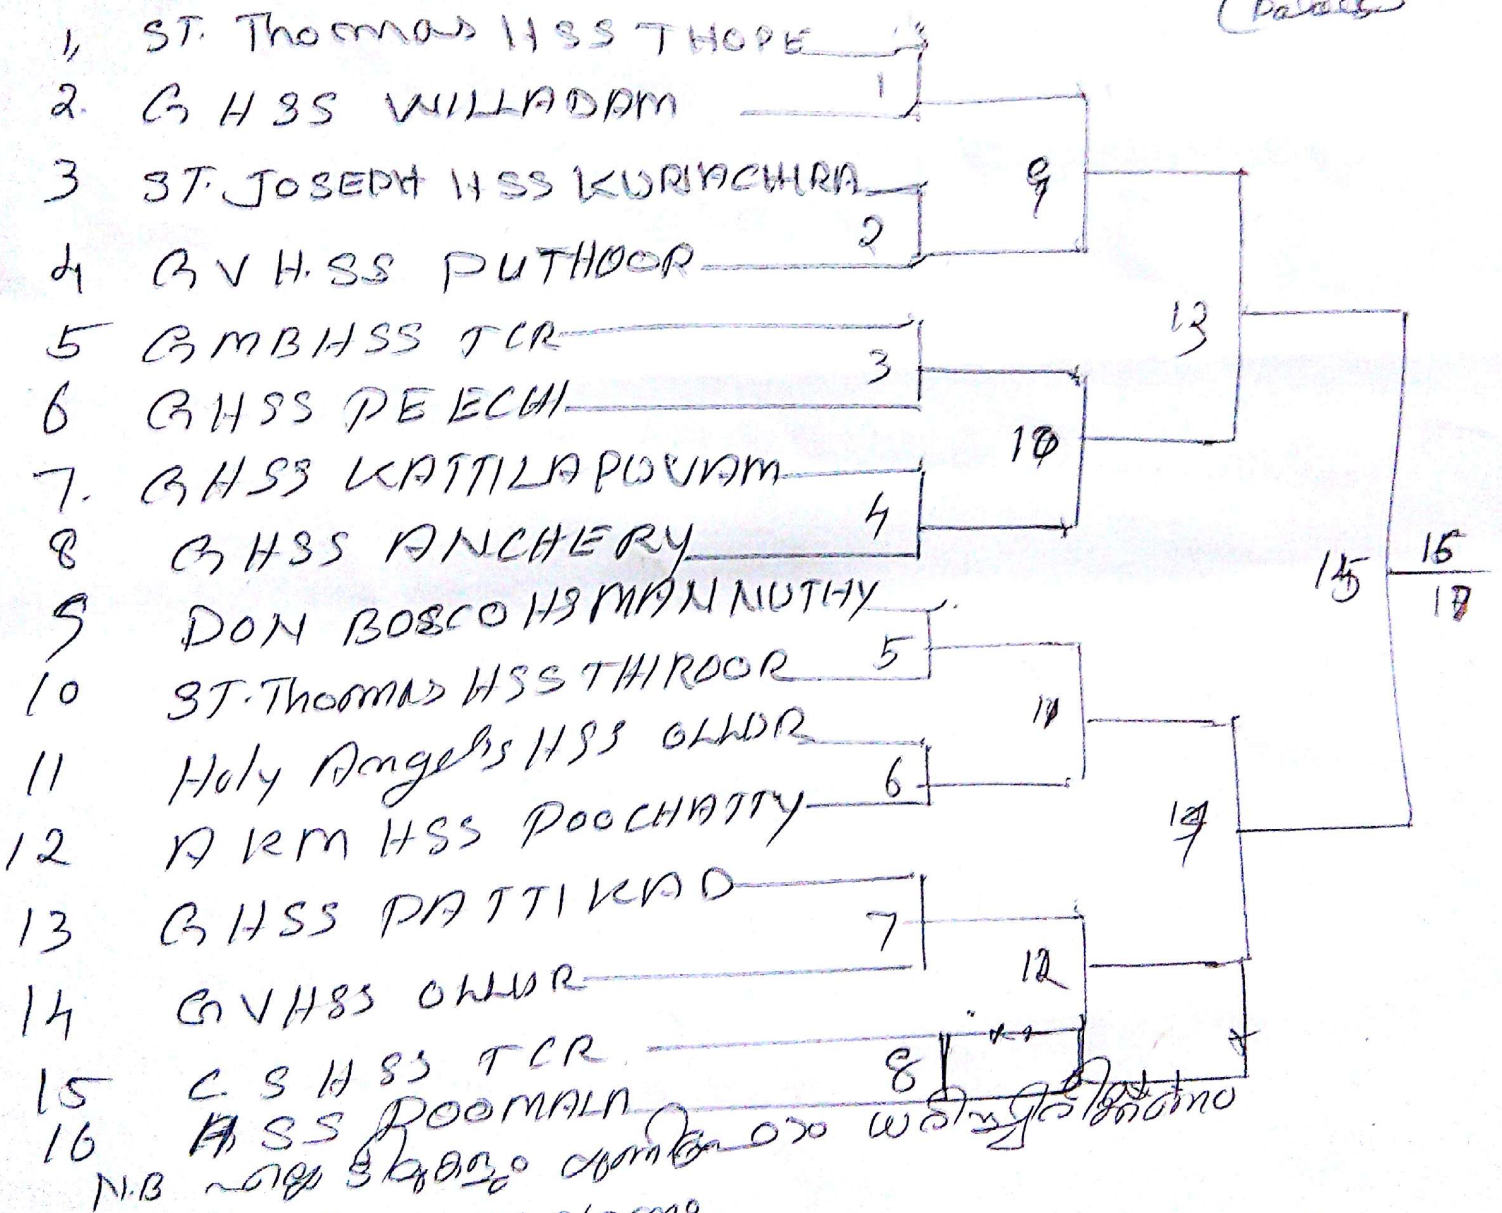 1, ST. Thomas HSS THOPE
1
2. GHSS VILLADAM
9
3 ST. JOSEPH HSS KURIACHIRA
2
4 GVH.SS PUTHOOR
13
5 GMBHSS TCR
3
6 GHSS PEECHI
10
7. GHSS KATTILAPOOVAM
4
8 GHSS ANCHERY
15 16
9 DON BOSCO HS MANNUTHY
5
10 ST. Thomas HSS THIROOR
11
11 Holy Angels HSS OLLUR
6
12 AKM HSS POOCHATTY
14
13 GHSS PATTIKAD
7
12
14 GVHSS OLLUR
15 CSHSS TCR
8
16 HSS POOMALA
N.B എല്ലാ ടീമുകളും